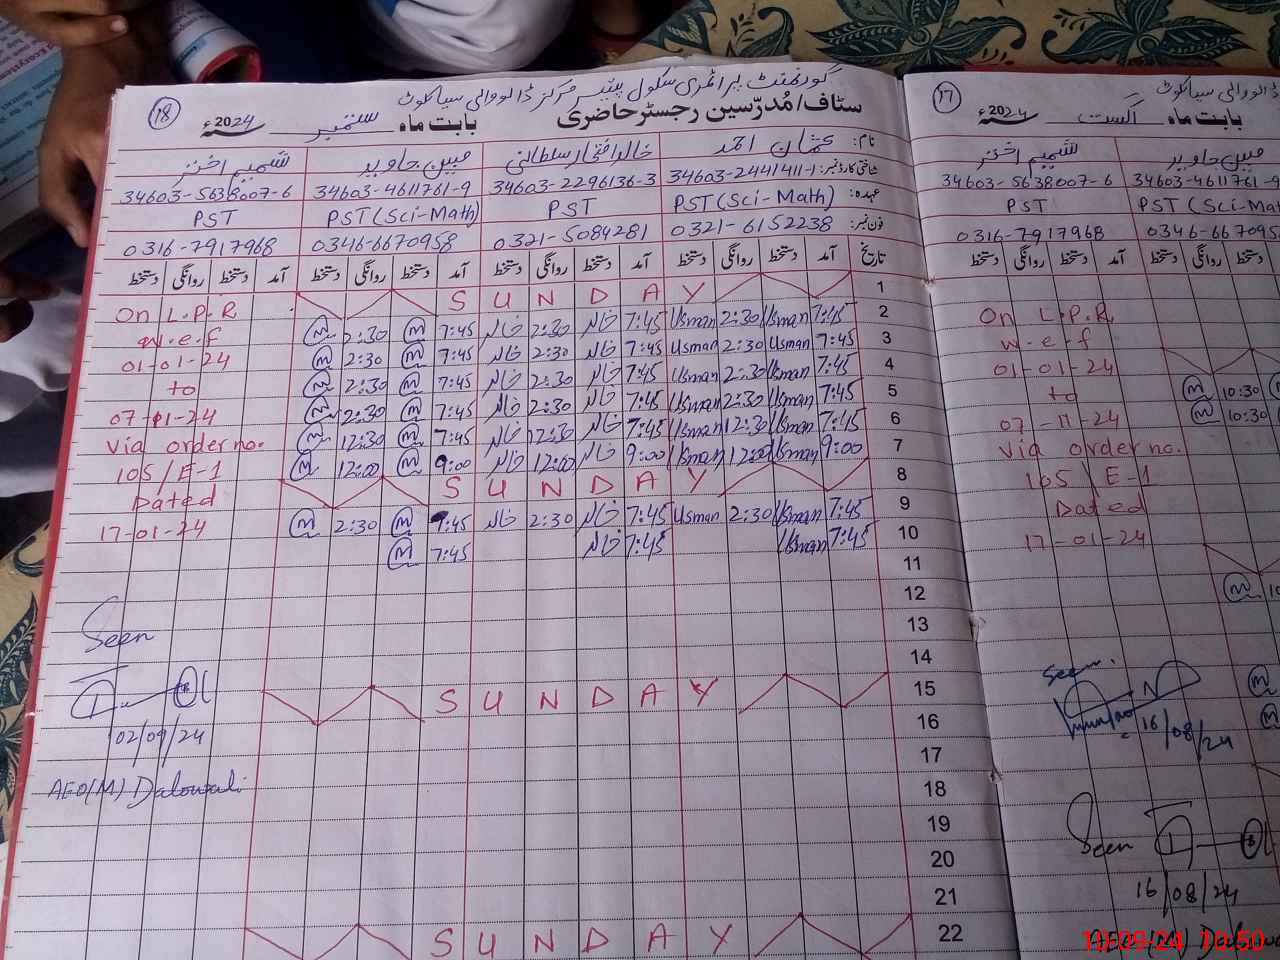 گورنمنٹ پرائمری سکول مرکز ڈالووالی سیالکوٹ
سٹاف/مُدرّسین رجسٹر حاضری
18 بابت ماہ ستمبر 2024ء
نام: عثمان احمد خالد افتخار سلطانی مبین جاوید شمیم اختر
شناختی کارڈ نمبر: 34603-2441411-1 34603-2296136-3 34603-4611761-9 34603-5638007-6
عہدہ: PST (Sci-Math) PST PST (Sci-Math) PST
فون نمبر: 0321-6152238 0321-5084281 0346-6670958 0316-7917968
تاریخ آمد دستخط روانگی دستخط آمد دستخط روانگی دستخط آمد دستخط روانگی دستخط آمد دستخط روانگی دستخط
1 SUNDAY
2 7:45 Usman 2:30 Usman 7:45 خالد 2:30 خالد 7:45 m 2:30 m
3 7:45 Usman 2:30 Usman 7:45 خالد 2:30 خالد 7:45 m 2:30 m
4 7:45 Usman 2:30 Usman 7:45 خالد 2:30 خالد 7:45 m 2:30 m
5 7:45 Usman 2:30 Usman 7:45 خالد 2:30 خالد 7:45 m 2:30 m
6 7:45 Usman 12:30 Usman 7:45 خالد 12:30 خالد 7:45 m 12:30 m
7 9:00 Usman 12:00 Usman 9:00 خالد 12:00 خالد 9:00 m 12:00 m
8 SUNDAY
9 7:45 Usman 2:30 Usman 7:45 خالد 2:30 خالد 7:45 m 2:30 m
10 7:45 Usman 7:45 خالد 7:45 m
11
12
13
14
15 SUNDAY
16
17
18
19
20
21
22 SUNDAY
On L.P.R
w.e.f
01-01-24
to
07-11-24
via order no.
105/E-1
Dated
17-01-24
Seen
02/09/24
AEO(M) Dalowali
17 ڈالووالی سیالکوٹ
بابت ماہ اگست 2024ء
مبین جاوید شمیم اختر
34603-4611761-9 34603-5638007-6
PST (Sci-Math PST
0346-667095 0316-7917968
دستخط روانگی دستخط آمد دستخط روانگی دستخط
On L.P.R
w.e.f
01-01-24
to
07-11-24
via order no.
105/E-1
Dated
17-01-24
m 10:30
m 10:30
m
m
m
Seen
16/08/24
Seen
16/08/24
AEO(M) Dalowa
10-09-24 10:50